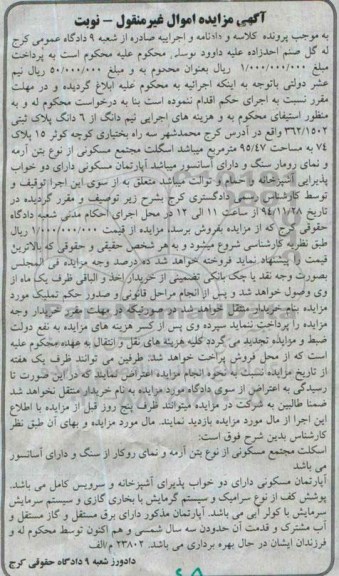 آگهی مزایده اموال غیرمنقول – نوبت
به موجب پرونده کلاسه و دادنامه و اجراییه صادره از شعبه ۹ دادگاه عمومی کرج
له گل صنم احدزاده علیه داوود محکوم علیه محکوم است به پرداخت
مبلغ ۱/۰۰۰/۰۰۰/۰۰۰ ریال بعنوان محکوم به و مبلغ ۵۰/۰۰۰/۰۰۰ ریال نیم
عشر دولتی باتوجه به اینکه اجرائیه به محکوم علیه ابلاغ گردیده و در مهلت
مقرر نسبت به اجرای حکم اقدام ننموده است بنا به درخواست محکوم له و به
منظور استیفای محکوم به و هزینه های اجرایی نیم دانگ از ۶ دانگ پلاک ثبتی
۳۶۲/۱۵۰۲ واقع در آدرس کرج محمدشهر سه راه بختیاری کوچه کوثر ۱۵ پلاک
۷۴ به مساحت ۹۵/۴۷ مترمربع میباشد اسکلت مجتمع مسکونی از نوع بتن آرمه
و نمای رومار سنگ و دارای آسانسور میباشد آپارتمان مسکونی دارای دو خواب
پذیرایی آشپزخانه و حمام و توالت میباشد متعلق به از سوی این اجرا توقیف و
توسط کارشناس رسمی دادگستری کرج بشرح زیر توصیف و مقرر گردیده در
تاریخ ۹۴/۱۱/۲۸ از ساعت ۱۱ الی ۱۲ در محل اجرای احکام مدنی شعبه دادگاه
حقوقی کرج که از مزایده بفروش برسد، مزایده از قیمت ۱/۰۰۰/۰۰۰/۰۰۰ ریال
طبق نظریه کارشناسی شروع میشود و به هر شخص حقیقی و حقوقی که بالاترین
قیمت را پیشنهاد نماید فروخته خواهد شد ده درصد وجه مزایده فی المجلس
بصورت وجه نقد یا چک بانکی تضمینی از خریدار اخذ و الباقی ظرف یک ماه از
وی وصول خواهد شد و پس از انجام مراحل قانونی و صدور حکم تملیک مورد
مزایده بنام خریدار منتقل خواهد شد در صورتیکه در مهلت مقرر خریدار وجه
مزایده را پرداخت ننماید سپرده وی پس از کسر هزینه های مزایده به نفع دولت
ضبط و مزایده تجدید می گردد کلیه هزینه های نقل و انتقال به عهده محکوم علیه
است که از محل فروش پراخت خواهد شد. طرفین می توانند ظرف یک هفته
از تاریخ مزایده نسبت به نحوه انجام مزایده اعتراض نمایند که در این صورت تا
رسیدگی به اعتراض از سوی دادگاه مورد مزایده به نام خریدار منتقل نخواهد شد
ضمنا طالبین به شرکت در مزایده میتوانند ظرف پنج روز قبل از مزایده با اطلاع
این اجرا از مال مورد مزایده بازدید نمایند. مال مورد مزایده و بهای آن طبق نظر
کارشناس بدین شرح فوق است:
اسکلت مجتمع مسکونی از نوع بتن آرمه و نمای روکار از سنگ و دارای آسانسور
می باشد
آپارتمان مسکونی دارای دو خواب پذیرای آشپزخانه و سرویس کامل می باشد.
پوشش کف از نوع سرامیک و سیستم گرمایش با بخاری گازی و سیستم سرمایش
سرمایش با کولر آبی می باشد. آپارتمان مذکور دارای برق مستقل و گاز مستقل و
آب مشترک و قدمت آن حدودن سه سال شمسی و هم اکنون توسط محکوم له و
فرزندان ایشان در حال بهره برداری می باشد. ۲۳۸۰۲ م/الف
دادورز شعبه ۹ دادگاه حقوقی کرج